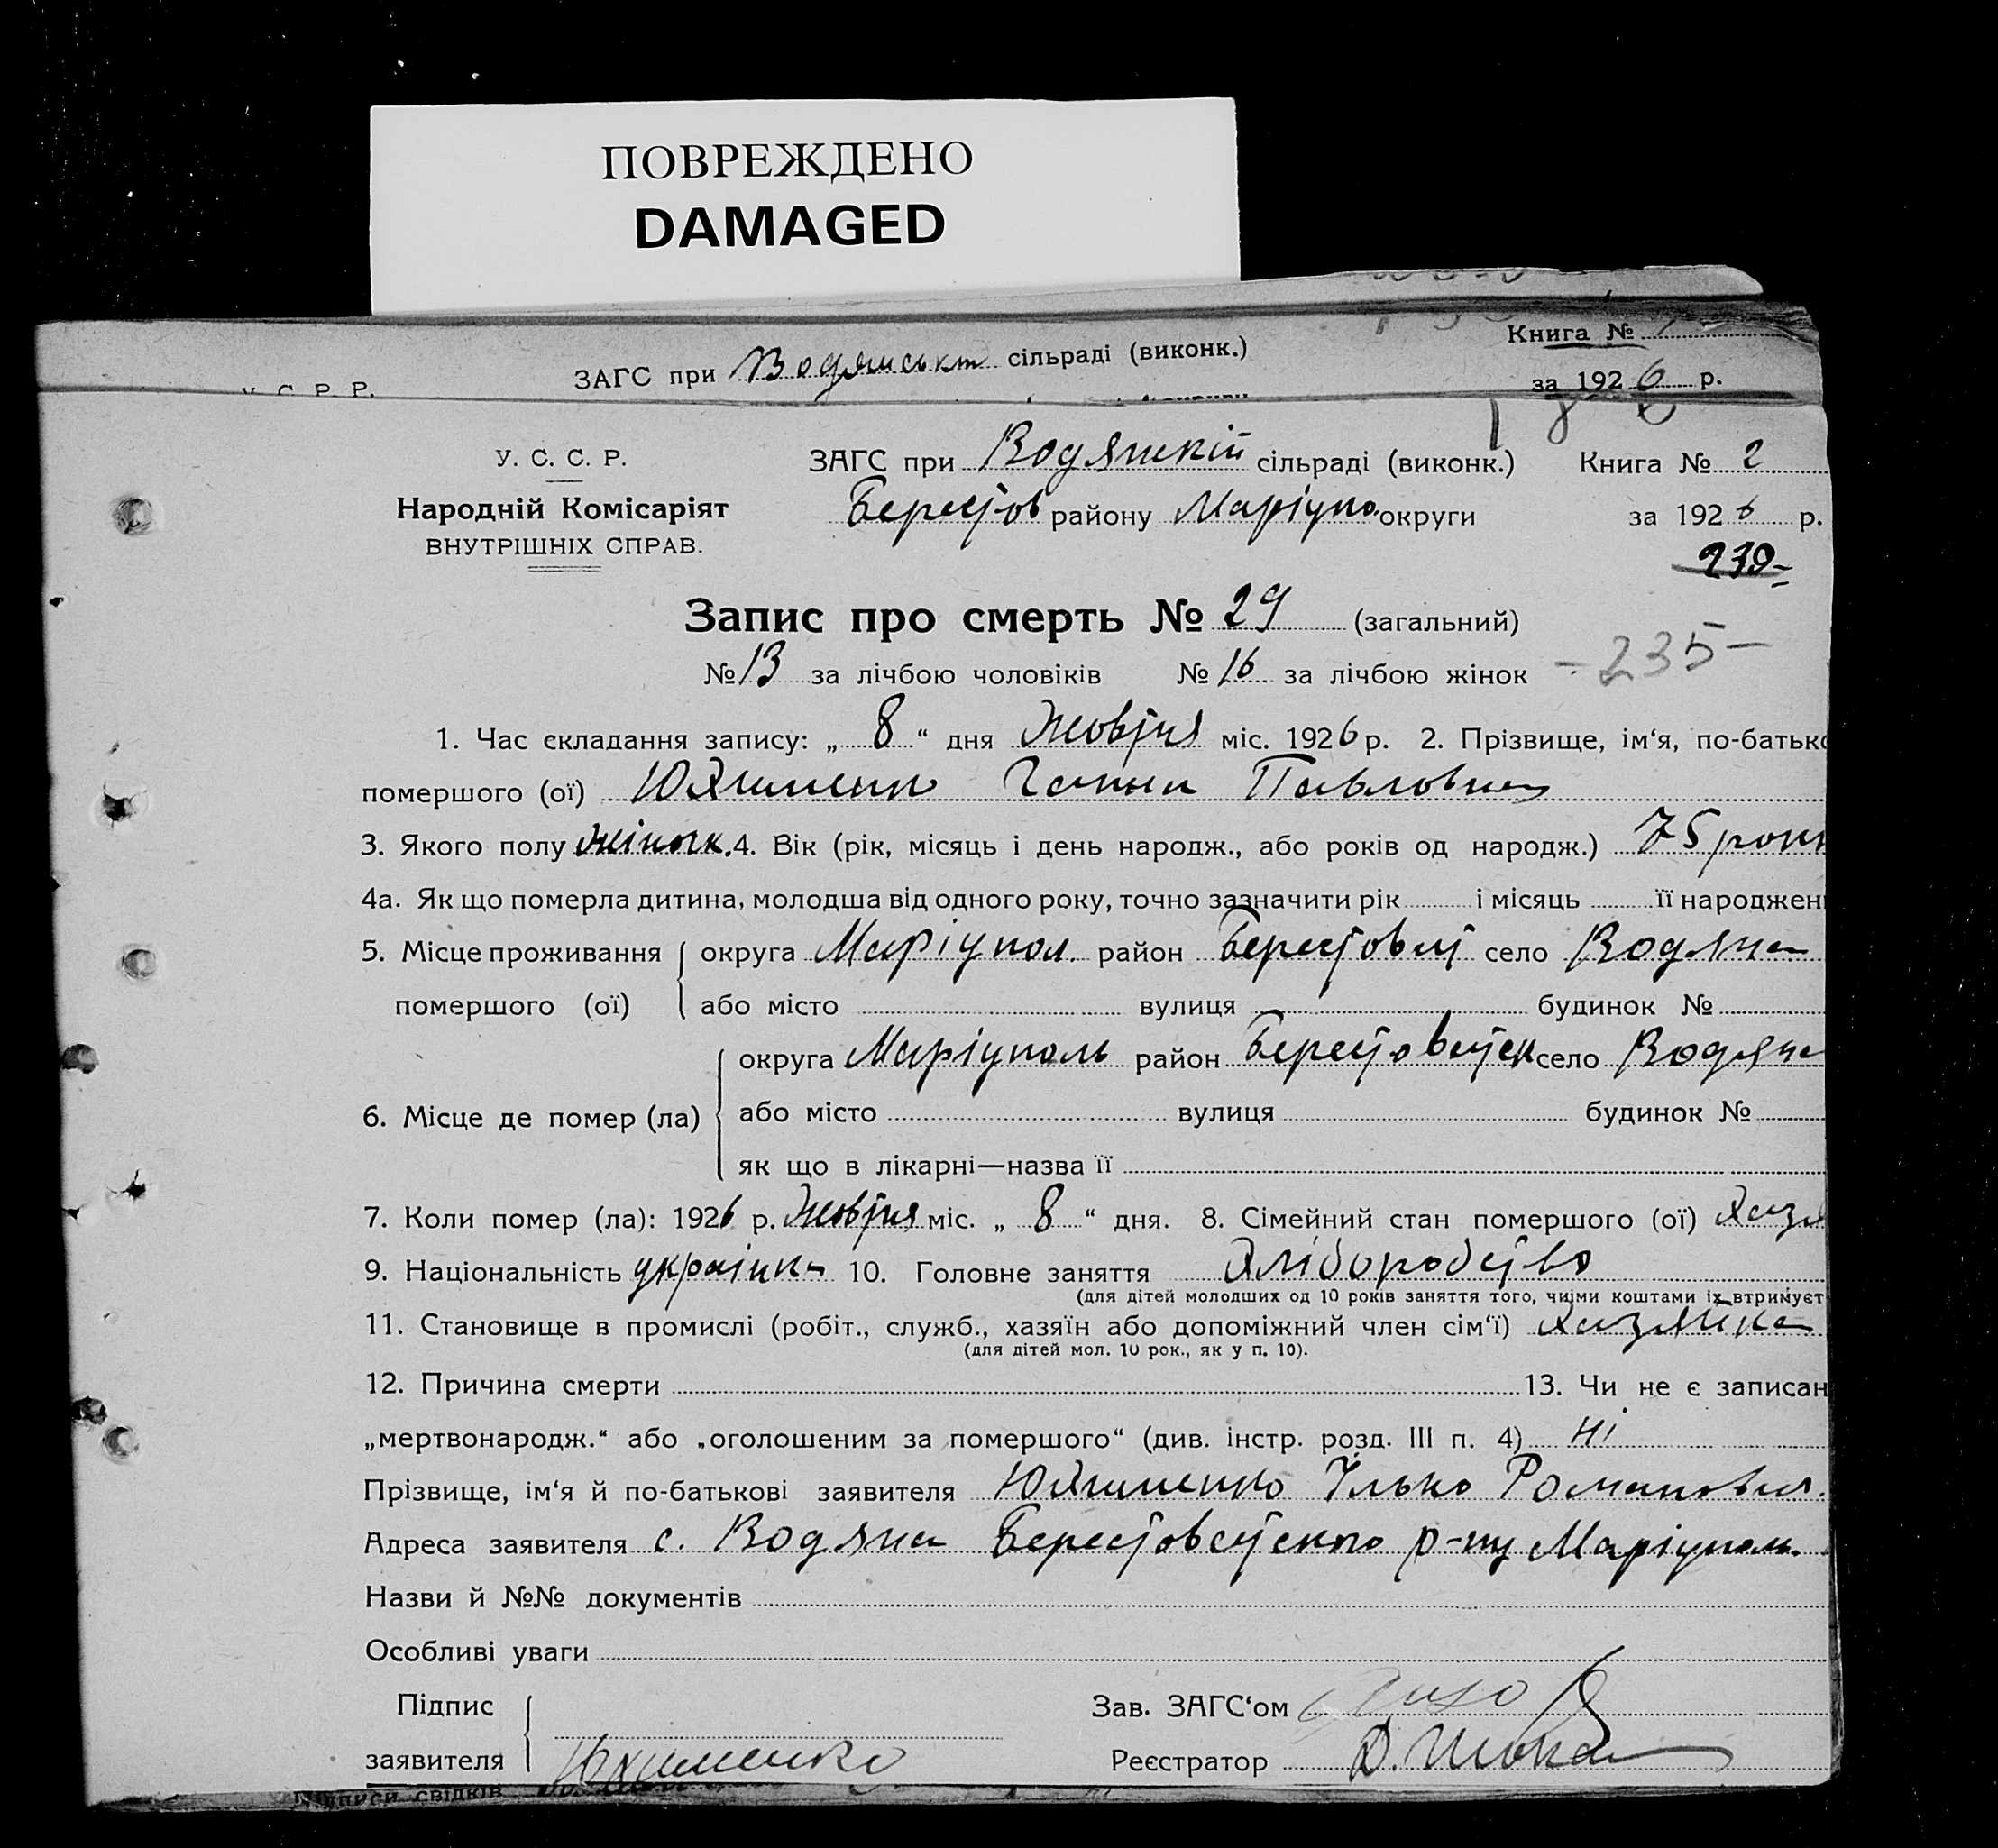 ПОВРЕЖДЕНО
DAMAGED
Книга №
ЗАГС при сільраді (виконк.)
У. С. Р. Р.
за 1926 р.
У. С. С. Р.
ЗАГС при Водянській сільраді (виконк.) Книга № 2
Народній Комісаріят
Берестов району Маріупо. округи за 1926 р.
ВНУТРІШНІХ СПРАВ.
239-
Запис про смерть № 29 (загальний)
№ 13 за лічбою чоловіків № 16 за лічбою жінок -235-
1. Час складання запису: „ 8 “ дня Жовтня міс. 1926 р. 2. Прізвище, ім‘я, по-батько
помершого (ої) Юхименко Ганна Павловна
3. Якого полу жіночк. 4. Вік (рік, місяць і день народж., або років од народж.) 75 роки
4а. Як що померла дитина, молодша від одного року, точно зазначити рік і місяць її народжен
5. Місце проживання округа Маріупол. район Берестовий село Водяна
помершого (ої) або місто вулиця будинок №
округа Маріуполь район Берестоветск село Водяна
6. Місце де помер (ла) або місто вулиця будинок №
як що в лікарні—назва її
7. Коли помер (ла): 1926 р. Жовтня міс. „ 8 “ дня. 8. Сімейний стан помершого (ої) Хазя
9. Національність українка 10. Головне заняття Хліборобство
(для дітей молодших од 10 років заняття того, чиїми коштами їх втримует
11. Становище в промислі (робіт., служб., хазяїн або допоміжний член сім‘ї) Хазяйка
(для дітей мол. 10 рок., як у п. 10).
12. Причина смерти 13. Чи не є записан
„мертвонародж.“ або „оголошеним за помершого“ (див. інстр. розд. III п. 4) Ні
Прізвище, ім‘я й по-батькові заявителя Юхименко Ілько Романович.
Адреса заявителя с. Водяна Берестоветского р-ну Маріуполь.
Назви й №№ документів
Особливі уваги
Підпис
Зав. ЗАГС‘ом
заявителя Юхименко
Реєстратор
Підписи свідків